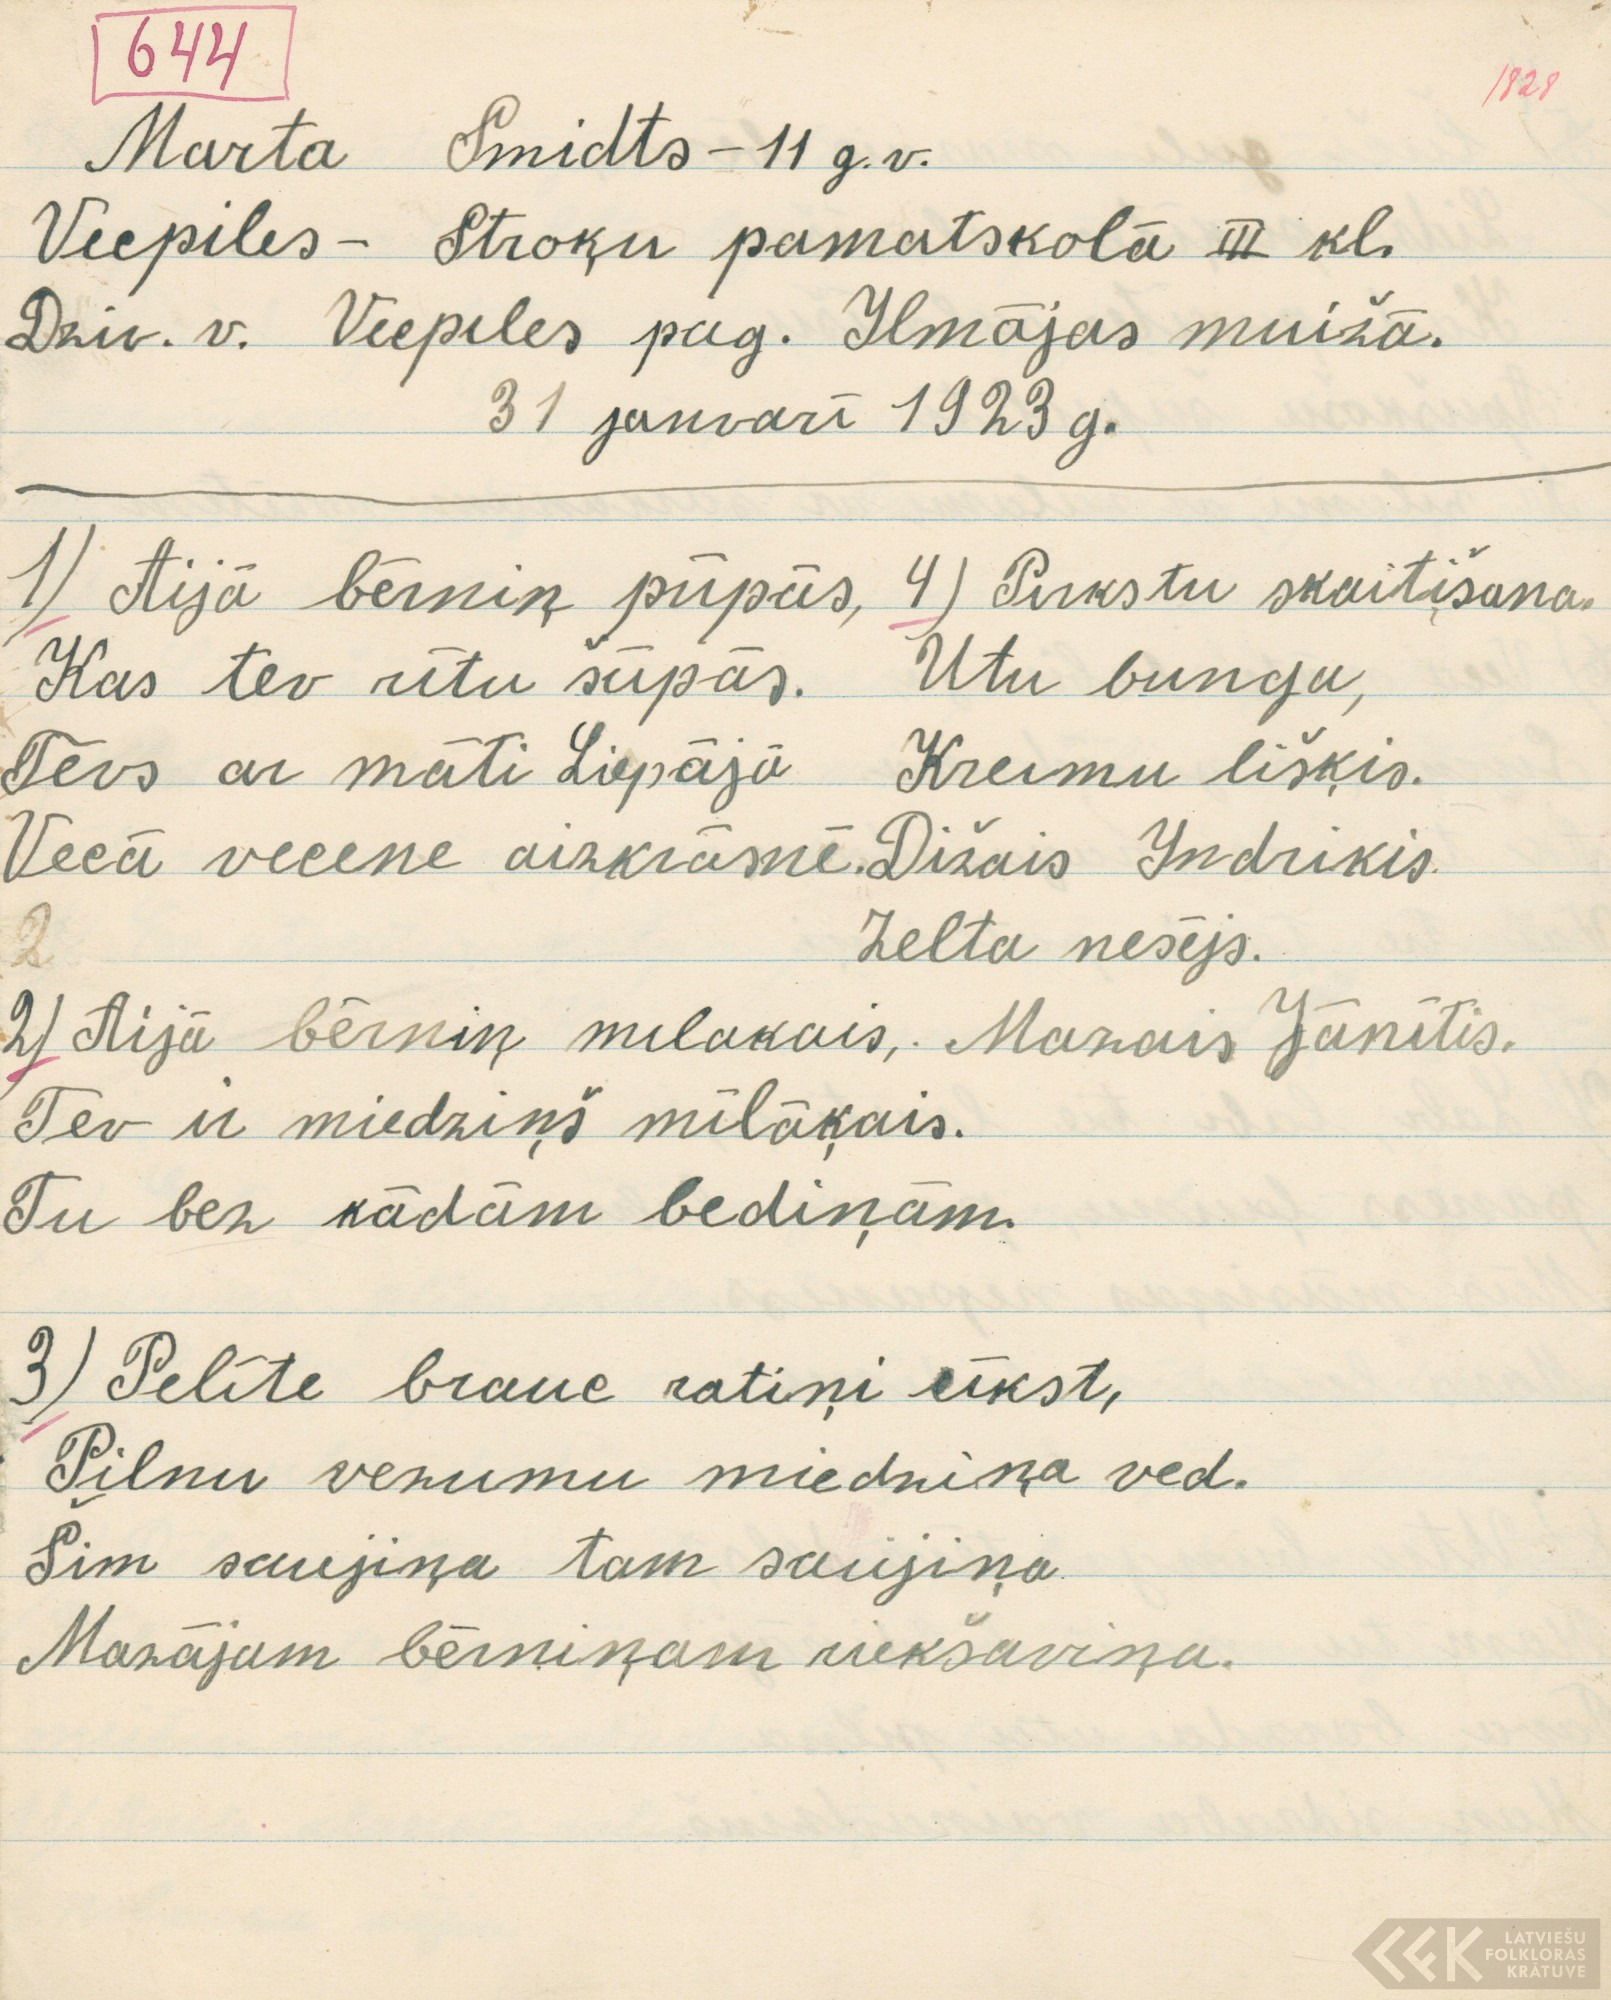 644
1828
Marta Smidts - 11 g.v.
Vecpiles - Stroķu pamatskolā III kl.
Dziv. v. Vecpiles pag. Ilmājas muižā.
31 janvarī 1923 g.
1) Aijā bērniņ pūpās,
Kas tev rītu šūpās.
Tēvs ar māti Liepājā
Vecā vecene aizkrāsnē.
2
2) Aijā bērniņ mīlakais,
Tev ir miedziņš mīļākais.
Tu bez kādām bediņām.
3) Pelīte brauc ratiņi čīkst,
Pilnu vezumu miedziņa ved.
Šim saujiņa tam saujiņa
Mazājam bērniņam riekšaviņa.
4) Pirkstu skaitīšana.
Utu bunga,
Kreimu lišķis.
Dižais Indriķis.
Zelta nesējs.
Mazais Jānītis.
LATVIEŠU
FOLKLORAS
KRĀTUVE